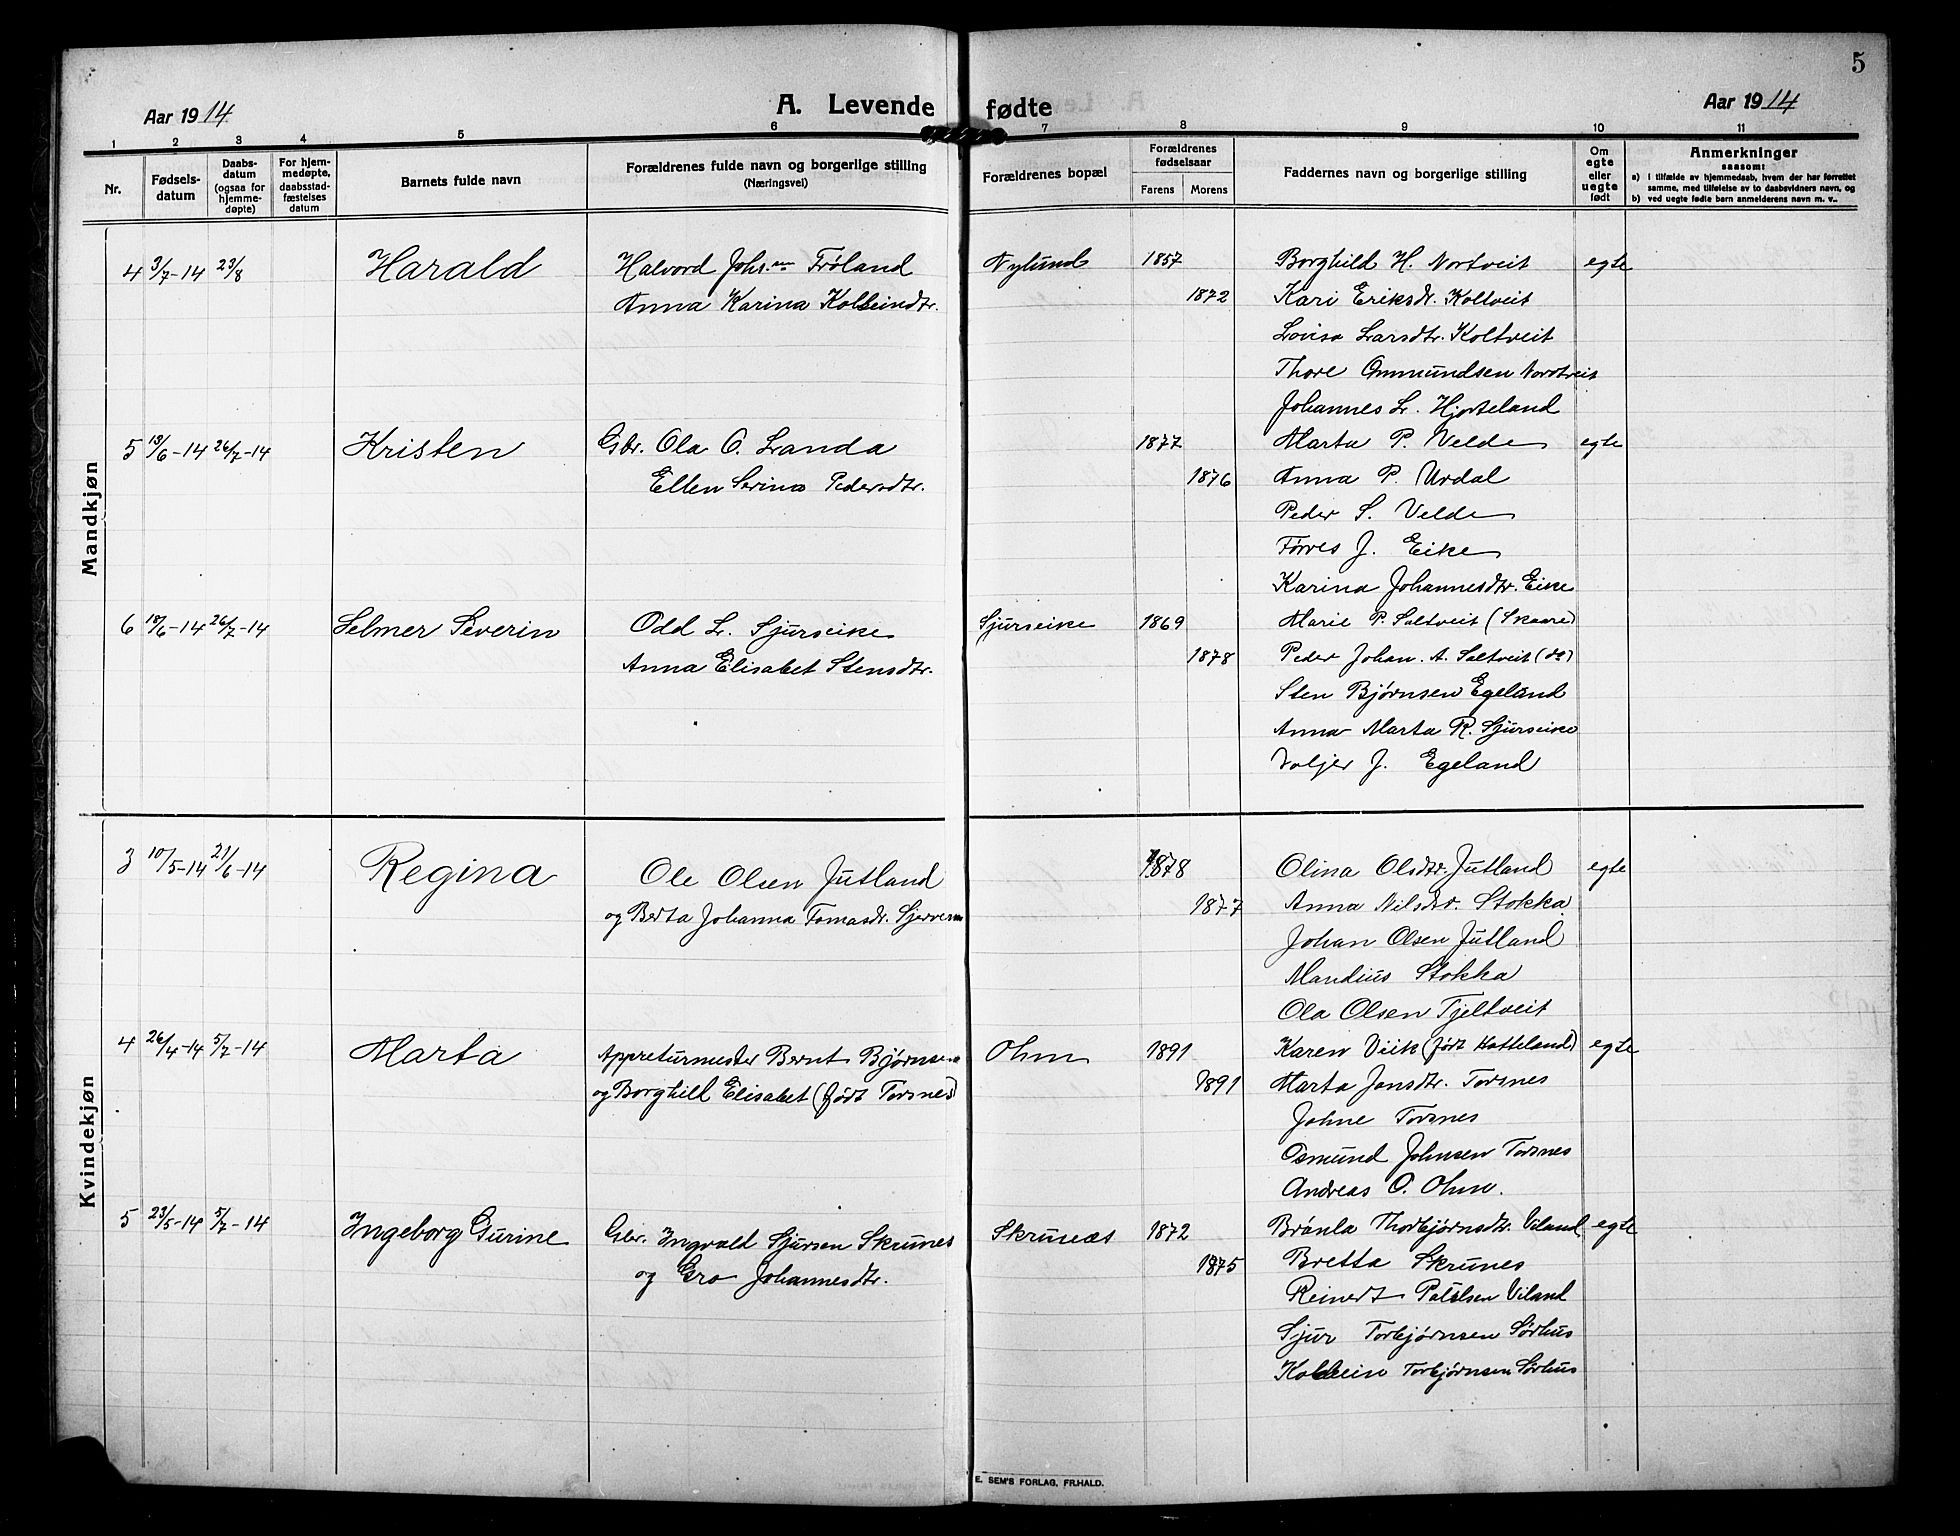 5
Aar 1914 A. Levende fødte Aar 1914
1 2 3 4 5 6 7 8 9 10 11
Nr. Fødsels-datum Daabs-datum (ogsaa for hjemme-døpte) For hjem-medøpte, daabsstad-fæstelses datum Barnets fulde navn Forældrenes fulde navn og borgerlige stilling (Næringsvei) Forældrenes bopæl Forældrenes fødselsaar Farens Morens Faddernes navn og borgerlige stilling Om egte eller uegte født Anmerkninger saasom:
a) i tilfælde av hjemmedaab, hvem der har forrettet samme, med tilføielse av to daabsvidners navn, og
b) ved uegte fødte barn anmelderens navn m. v..
Mandkjøn
4 3/7-14 23/8 Harald Halvord Johs.sen Frøland Nylund 1857 Borghild H. Nortveit egte
Anna Karina Kolbeindtr. 1872 Kari Eriksdr. Koltveit
Lovisa Larsdtr. Koltveit
Thore Ommundsen Nordtveit
Johannes L. Hjorteland
5 13/6-14 26/7-14 Kristen Gbr. Ola O. Landa 1877 Marta P. Velde egte
Ellen Serina Pedersdtr. 1876 Anna P. Urdal
Peder S. Velde
Tørres J. Eike
Karina Johannesdtr. Eike
6 18/6-14 26/7-14 Selmer Severin Odd L. Sjurseike Sjurseike 1869 Marie P. Saltveit (Skaare)
Anna Elisabet Stensdtr. 1878 Peder Johan. A. Saltveit (do)
Sten Bjørnsen Egeland
Anna Marta R. Sjurseike
Valjer J. Egeland
Kvindekjøn
3 10/5-14 21/6-14 Regina Ole Olsen Jutland 1878 Olina Olsdtr. Jutland egte
og Berta Johanna Tomasdr. 1877 Anna Nilsdtr. Stokka
Johan Olsen Jutland
Mandius Stokka
Ola Olsen Tjeltveit
4 26/4-14 5/7-14 Marta Appreturmester Bernt Bjørnsen Ohm 1891 Karen Viik (født Hatteland) egte
og Borghild Elisabet (født Torsnes) 1891 Marta Jonsdtr. Torsnes
Johne Torsnes
Osmund Johnsen Torsnes
Andreas O. Ohm.
5 23/5-14 5/7-14 Ingeborg Gurine Gbr. Ingvald Sjursen Skrunes Skrunæs 1872 Brønla Thorbjørnsdtr. Viland egte
og Gro Johannesdtr. 1875 Bretta Skrunes
Reinert Paulsen Viland
Sjur Torbjørnsen Sørhus
Kolbein Torbjørnsen Sørhus
E. SEM'S FORLAG, FR.HALD.